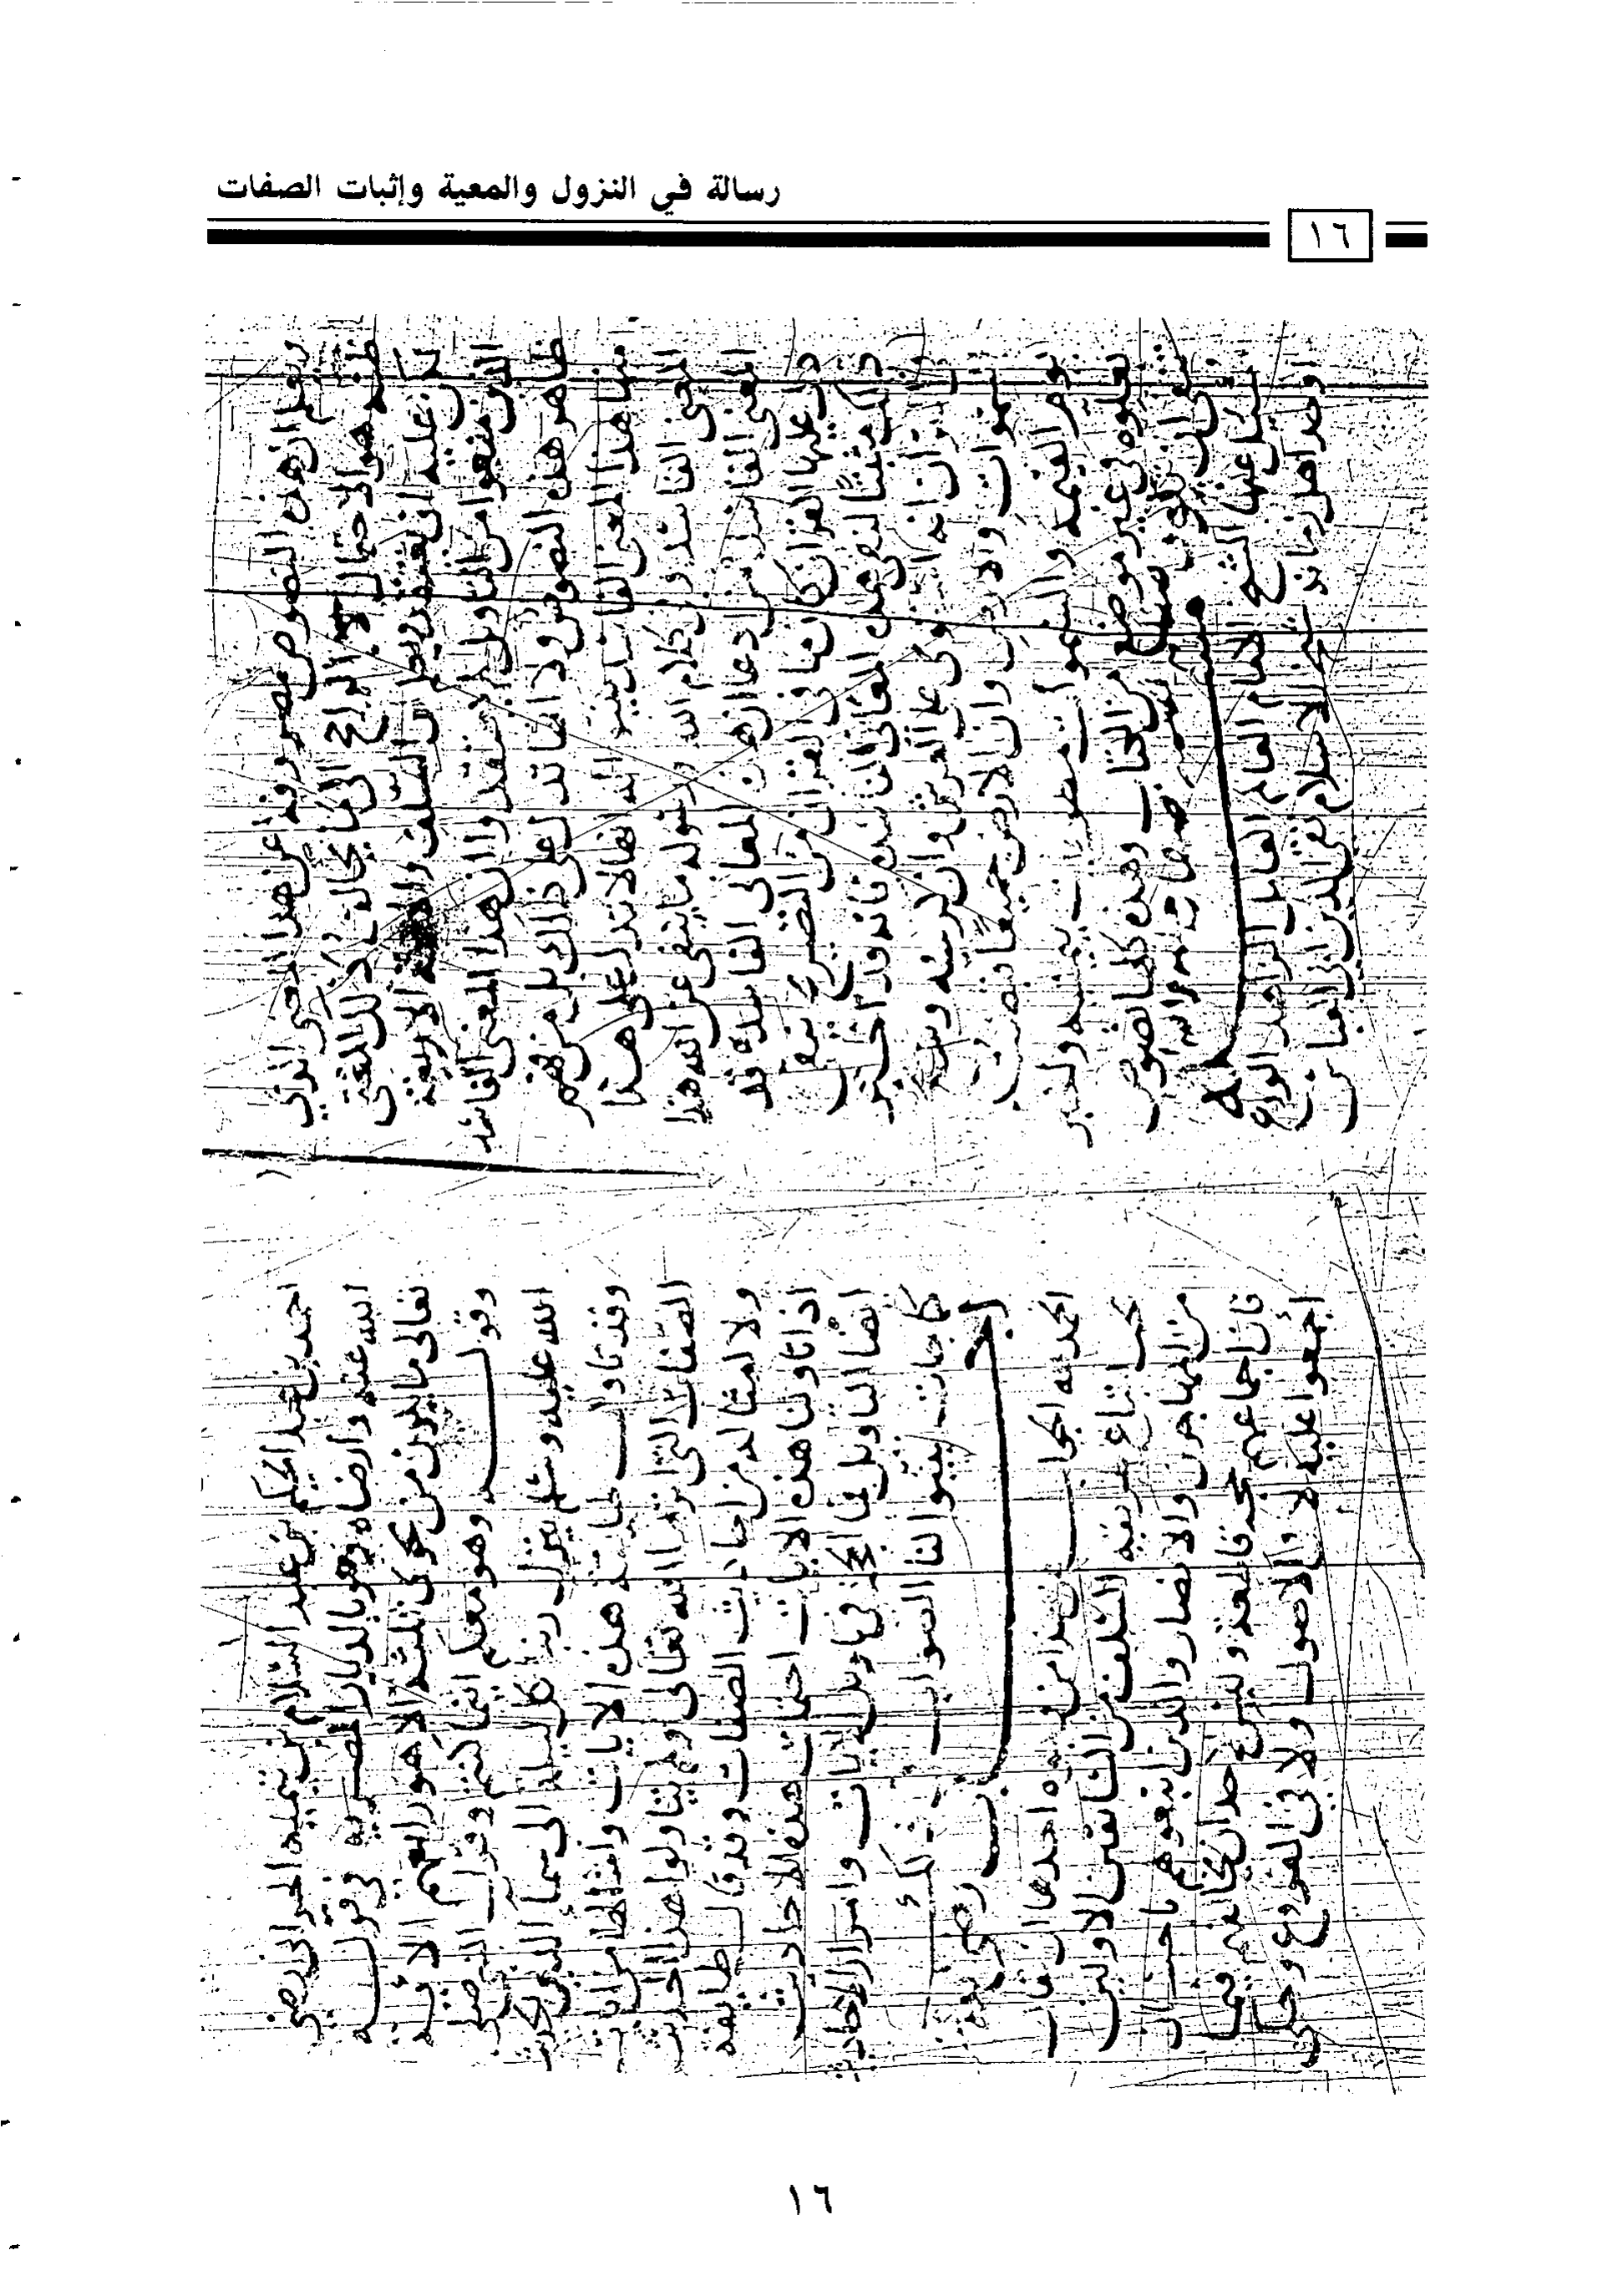 رسالة في النزول والمعية وإثبات الصفات
١٦
يعلم ان هذه النصوص مصروفة عن هذا المعنى الذي
ظنه هو الاحتمال الراجح الى ما يخالف ذلك المعنى
عليه السلف والأئمة الاربعة
الذين منعوا من التاويل لم يعتقدوا ان هذا المعنى الفاسد
ظاهر هذه النصوص انها تدل على ذلك بل من فهم
منها هذا المعنى الفاسد بينوا له انها لا تدل على هذا
المعنى الفاسد وان كلام الله ورسوله ما ينفى عن الله هذا
المعنى الفاسد ادعا ان هذه المعانى الفاسدة قد
دل عليها القران كان ما في القران من
هذه المعاني الفاسدة فانه قد اخبر
انه استوى على العرش وان كرسيه وسع
السموات والارض وان الارض جميعا قبضته
يوم القيمة والسموات مطويات بيمينه واخبر
بعلوه في غير موضع من الكتاب وهذه كلها نصوص
سئل عنها الشيخ الامام العالم العامل الزاهد الورع
اوحد اهل زمانه شيخ الاسلام تقي الدين ابو العباس
احمد بن عبد الحليم بن عبد السلام بن تيمية الحراني رضي
الله عنه وارضاه وهو بالديار المصرية في قوله
تعالى ما يكون من نجوى ثلثة الا هو رابعهم الاية
وقوله وهو معكم اينما كنتم وقول النبي صلى
الله عليه وسلم ينزل ربنا كل ليلة الى سماء الدنيا الحديث
وقد تاولت طائفة هذه الايات وامثالها من ايات
الصفات التي انزلها الله تعالى ولم يتاولوا هذا الحديث
ولا امثاله من احاديث الصفات وقد قال طائفة
اذا تاولنا هذه الايات احتاجت هذه الاحاديث
ايضا التاويل فما الحكم في تاويل الايات وامرار الاحاديث
كما جاءت بينوا لنا الصواب
الحمد لله الجواب عن هذا من وجوه احدها ان يقال
يجب اتباع طريقة السلف من السابقين الاولين
من المهاجرين والانصار والذين اتبعوهم باحسان
فان اجماعهم حجة قاطعة وليس لاحد ان يخالفهم فيما
اجمعوا عليه لا في الاصول ولا في الفروع وحكى
١٦